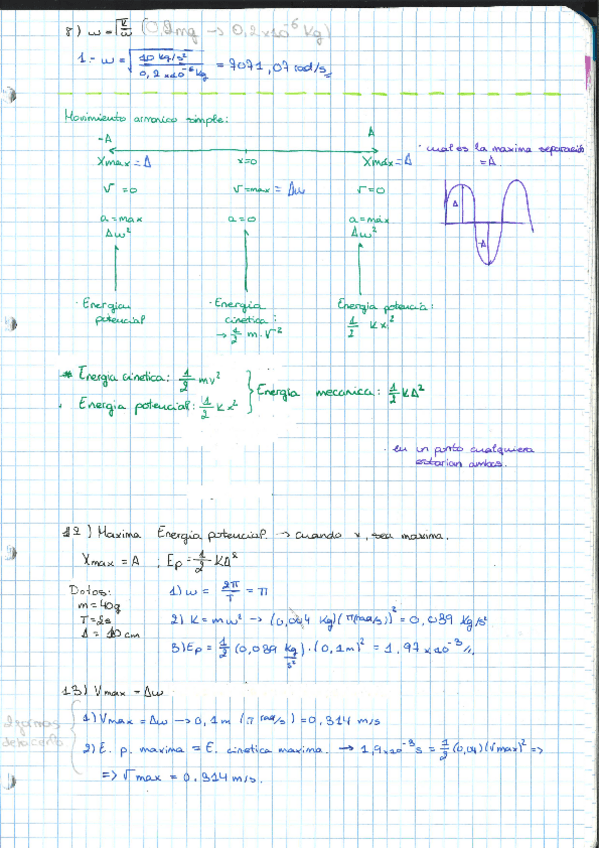 8) ω = √(K/ω) (0,2mg → 0,2x10⁻⁶ Kg)
1- ω = √(10 Kg/s² / 0,2x10⁻⁶ Kg) = 7071,07 rad/s
Movimiento armonico simple:
-A A
Xmax = A x=0 Xmáx = A
· cual es la maxima separación
= A
V = 0 V=max = Aω V = 0
A
-A
a = max a = 0 a = máx
Aω² Aω²
· Energia potencial
· Energia cinetica: → 1/2 m·V²
Energia potencia: 1/2 Kx²
* Energia cinetica: 1/2 mv²
· Energia potencial: 1/2 Kx²
} Energia mecanica: 1/2 KA²
· en un punto cualquiera
estarian ambas.
12) Maxima Energia potencial → cuando x, sea maxima.
Xmax = A ; Ep = 1/2 KA²
Datos:
m = 40g
T = 2s
A = 10 cm
1) ω = 2π/T = π
2) K = mω² → (0,04 Kg)(π(rad/s))² = 0,039 Kg/s²
3) Ep = 1/2 (0,039 Kg/s²)·(0,1m)² = 1,97x10⁻³
13) Vmax - Aω
2 formas
de hacerlo
1) Vmax = Aω → 0,1m (π rad/s) = 0,314 m/s
2) E. p. maxima = E. cinetica maxima. → 1,9x10⁻³ s = 1/2 (0,04)(Vmax)² =>
=> Vmax = 0.314 m/s.